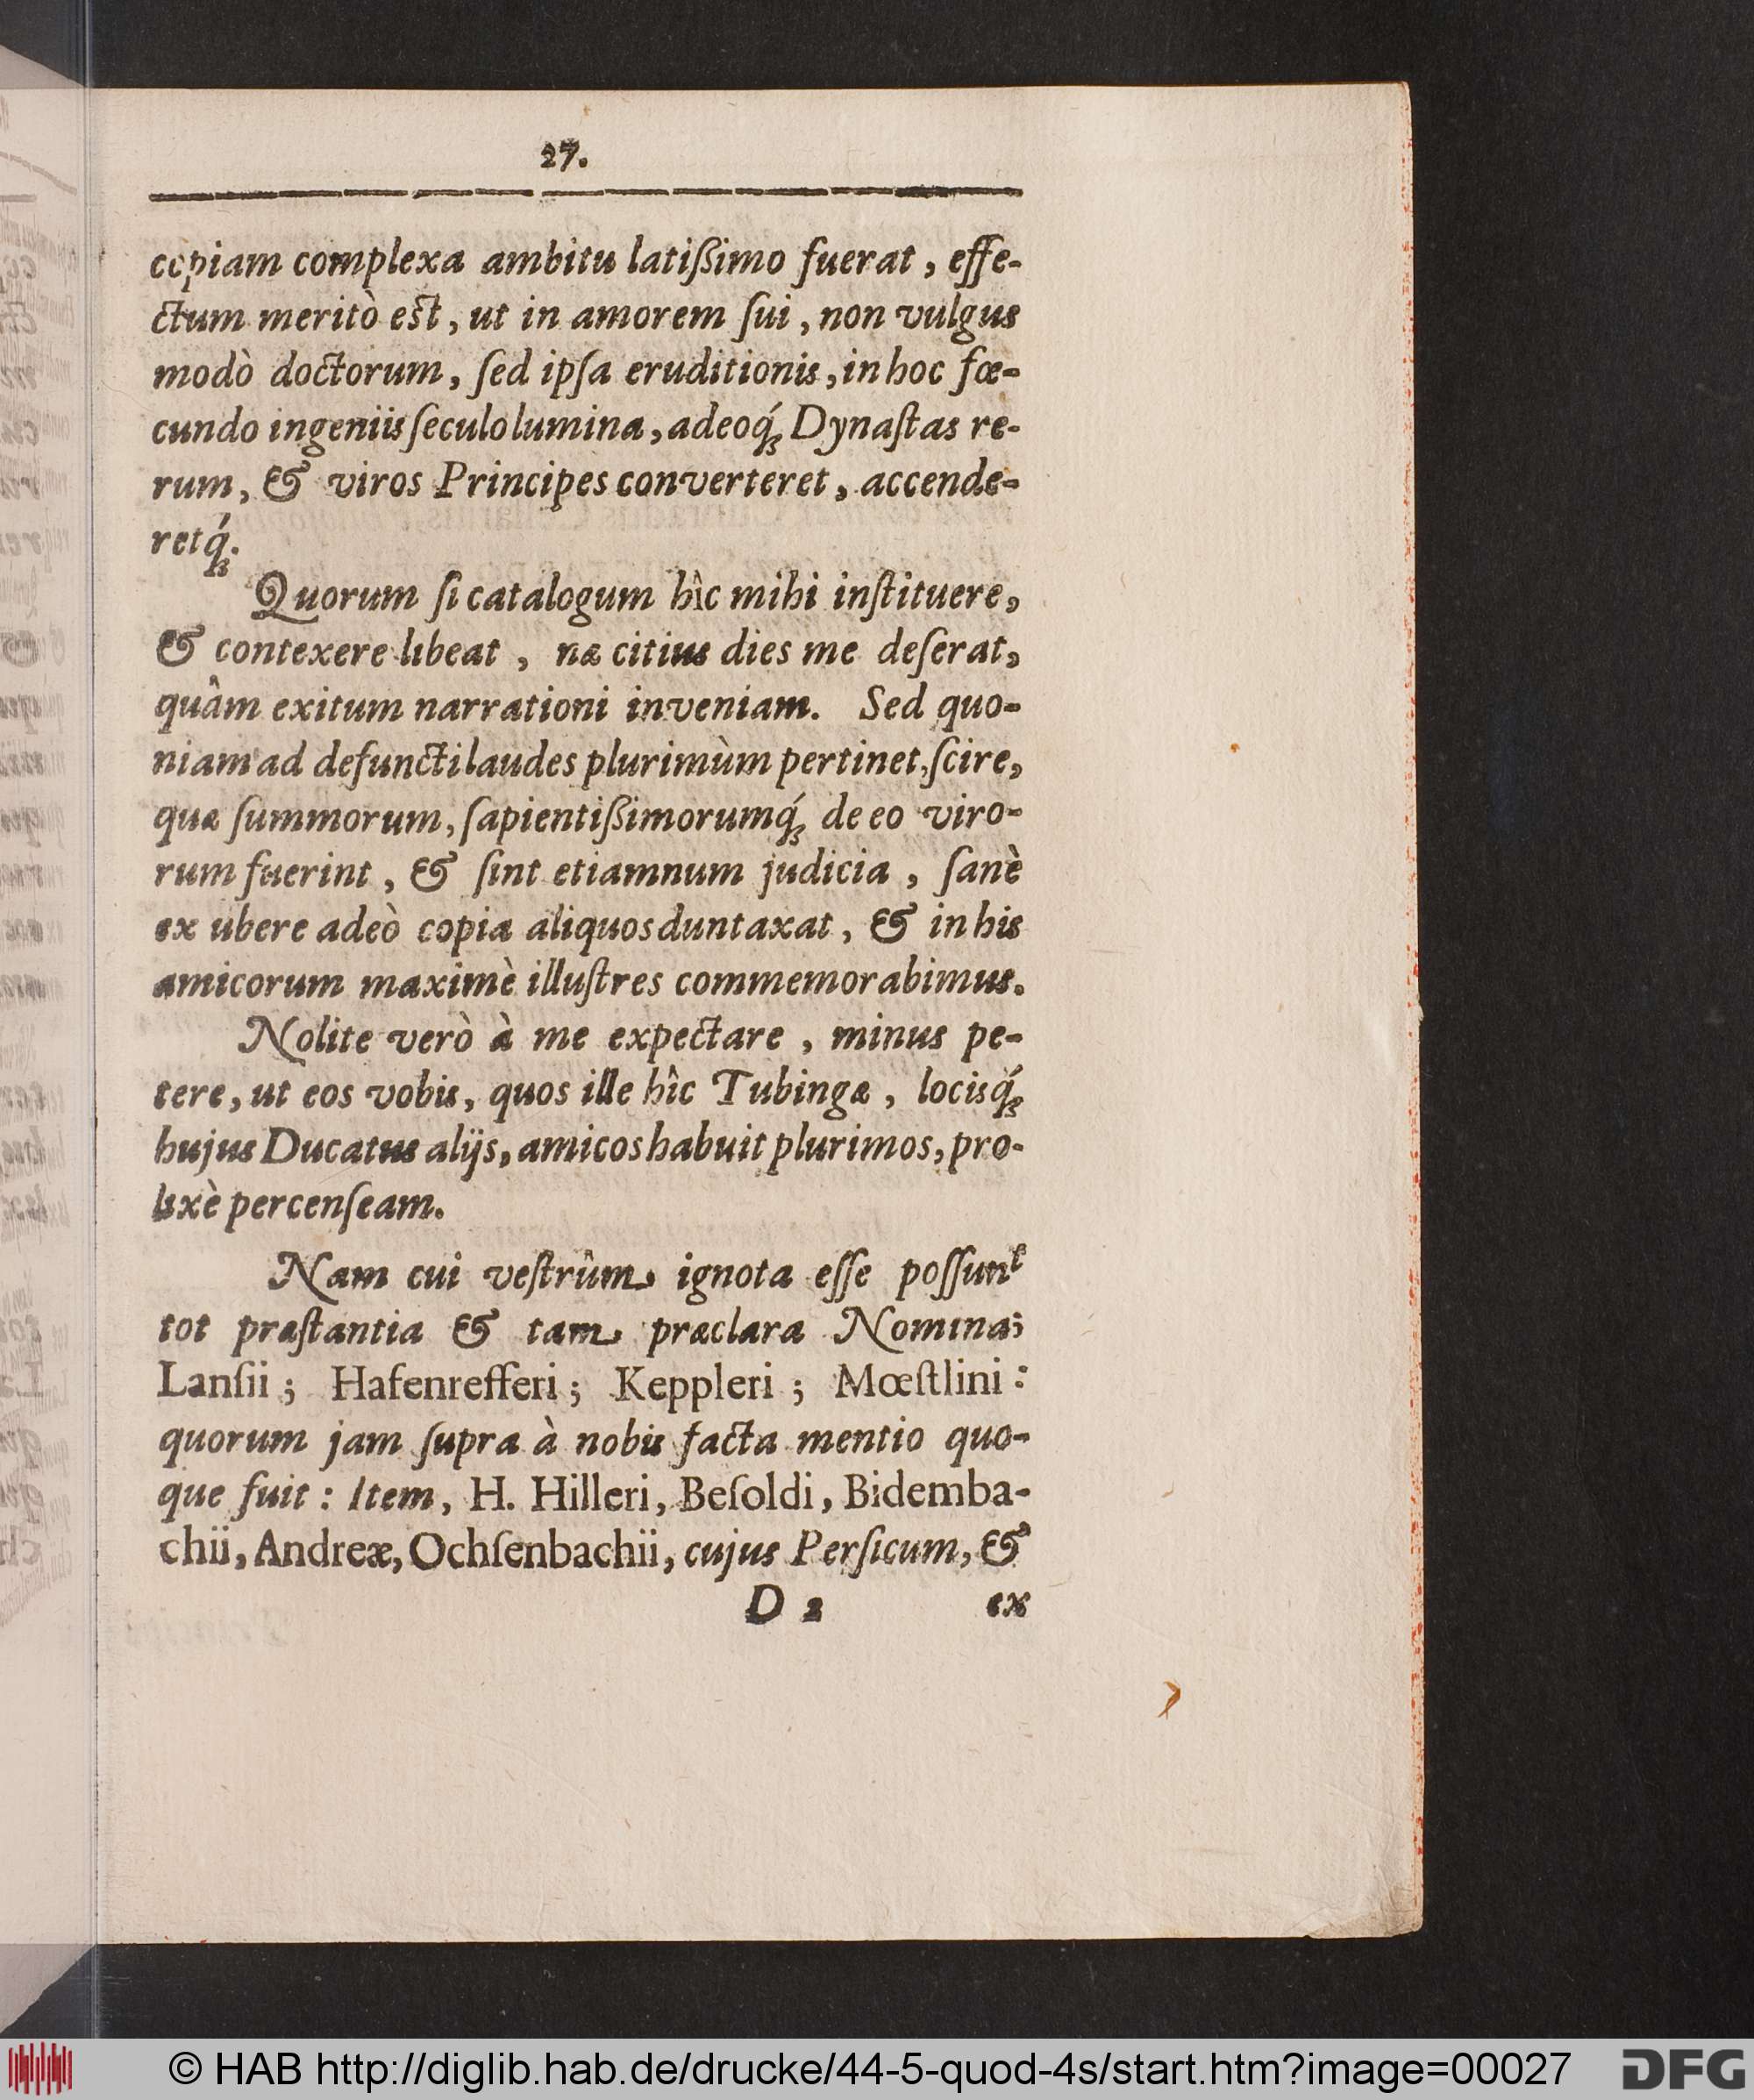 27.
copiam complexa ambitu latißimo fuerat, effe-
ctum meritò est, ut in amorem ſui, non vulgus
modò doctorum, ſed ipſa eruditionis, in hoc fœ-
cundo ingeniis ſeculo lumina, adeoq́ꝫ Dynaſtas re-
rum, & viros Principes converteret, accende-
retq́ꝫ.
Quorum ſi catalogum hîc mihi inſtituere,
& contexere libeat, næ citius dies me deſerat,
quâm exitum narrationi inveniam. Sed quo-
niam ad defuncti laudes plurimùm pertinet, ſcire,
quæ ſummorum, ſapientißimorumq́ꝫ de eo viro-
rum fuerint, & ſint etiamnum judicia, ſanè
ex ubere adeò copia aliquos duntaxat, & in his
amicorum maximè illuſtres commemorabimus.
Nolite verò à me expectare, minus pe-
tere, ut eos vobis, quos ille hîc Tubingæ, locisq́ꝫ
hujus Ducatus alijs, amicos habuit plurimos, pro-
lixè percenſeam.
Nam cui veſtrûm ignota eſſe poſſunt
tot præſtantia & tam præclara Nomina;
Lanſii; Hafenrefferi; Keppleri; Mœſtlini:
quorum jam ſupra à nobis facta mentio quo-
que fuit: Item, H. Hilleri, Beſoldi, Bidemba-
chii, Andreæ, Ochſenbachii, cujus Perſicum, &
D 2 ex
© HAB http://diglib.hab.de/drucke/44-5-quod-4s/start.htm?image=00027 DFG